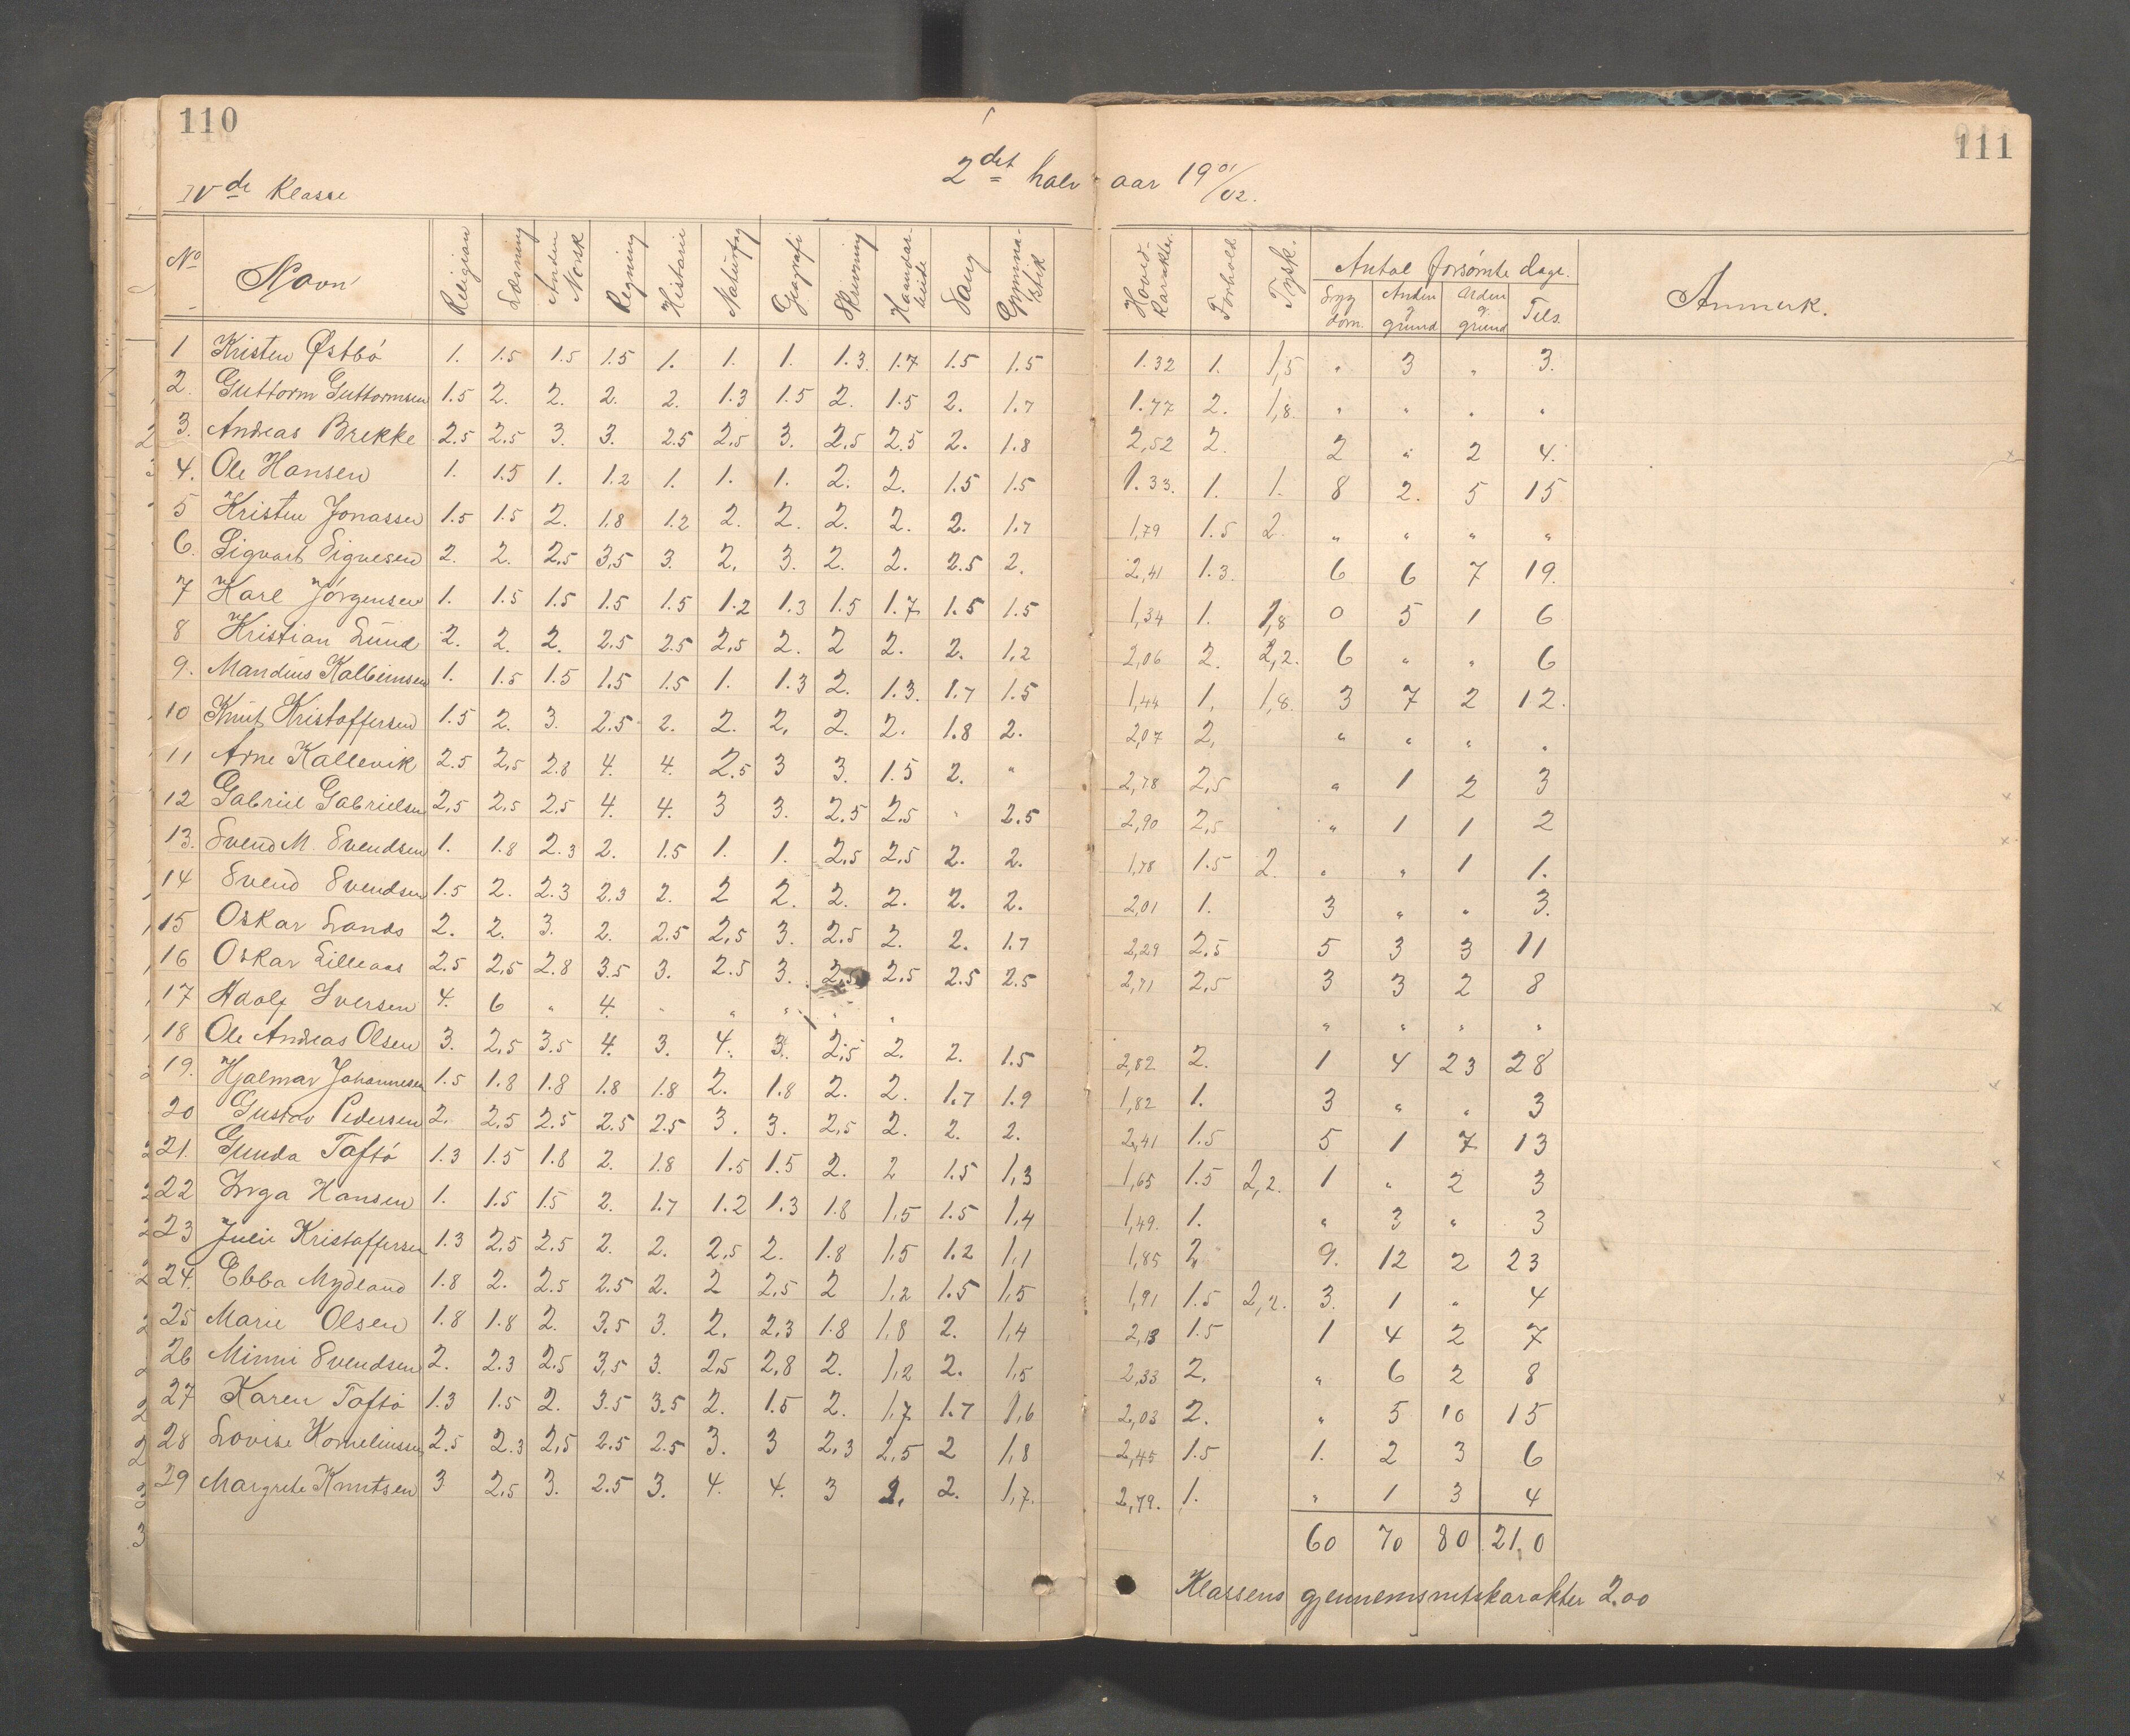 110
111
IVde Klasse
2det halv aar 1901/02.
No Navn Religion Læsning Anden Norsk Regning Historie Naturfag Geografi Skrivning Haandarbeide Sang Gymnastik Hoved-Karakter. Forhold Tysk. Antal forsømte dage. Sygdom. Anden g grund Anden g. grund Tils. Anmerk.
1 Kristen Østbö 1. 1.5 1.5 1.5 1. 1. 1. 1.3. 1.7 1.5 1.5 1.32 1. 1,5 " 3 " 3.
2. Guttorm Guttormsen 1.5 2. 2. 2. 2. 1.3 1.5 2. 1.5 2. 1.7 1.77 2. 1,8. " " " "
3. Andreas Brekke 2.5 2.5 3. 3. 2.5 2.5 3. 2.5 2.5 2. 1.8 2,52 2. 2 " 2 4.
4. Ole Hansen 1. 1.5 1. 1.2 1. 1. 1. 2. 2. 1.5 1.5 1.33. 1. 1. 8 2. 5 15
5 Kristen Jonassen 1.5 1.5 2. 1.8 1.2 2. 2. 2. 2. 2. 1.7 1,79 1.5 2. " " " "
6. Sigvart Sigvesen 2. 2. 2.5 3,5 3. 2. 3. 2. 2. 2.5 2. 2,41 1.3. 6 6 7 19.
7 Karl Jörgensen 1. 1.5 1.5 1.5 1.5 1.2 1.3 1.5 1.7 1.5 1.5 1,34 1. 1,8 0 5 1 6
8 Kristian Lund 2. 2. 2. 2.5 2.5 2,5 2. 2 2. 2. 1,2 2,06 2. 2,2. 6 " " 6
9. Mandius Kalbeinsen 1. 1.5 1.5 1.5 1.5 1. 1.3 2. 1.3. 1.7 1.5 1,44 1. 1,8. 3 7 2 12.
10 Knut Kristoffersen 1.5 2. 3. 2.5 2. 2. 2. 2. 2. 1.8 2. 2,07 2, " " " "
11 Arne Kallevik 2.5 2,5 2.8 4. 4. 2.5 3 3. 1.5 2. " 2,78 2,5 " 1 2 3
12 Gabriel Gabrielsen 2,5 2.5 2.5 4. 4. 3 3. 2.5 2.5 " 2.5 2,90 2,5 " 1 1 2
13. Svend M. Svendsen 1. 1.8 2.3 2. 1.5 1. 1. 2,5 2,5 2. 2. 1,78 1.5 2. " " 1 1.
14 Svend Svendsen 1.5 2. 2.3 2.3 2. 2 2. 2. 2. 2. 2. 2,01 1. 3 " " 3.
15 Oskar Lands 2. 2. 3. 2. 2.5 2,5 3. 2.5 2. 2. 1.7 2,29 2.5 5 3 3 11
16 Oskar Lilleaas 2.5 2,5 2.8 3.5 3. 2.5 3. 2,5 2.5 2.5 2.5 2,71 2,5 3 3 2 8
17 Adolf Iversen 4. 6 " 4. " " " " " " " " "
18 Ole Andreas Olsen 3. 2,5 3.5 4. 3. 4. 3. 2,5 2. 2. 1.5 2,82 2. 1 4 23 28
19. Hjalmar Johannesen 1.5 1.8 1.8 1.8 1.8 2. 1.8 2. 2. 1.7 1.9 1,82 1. 3 " " 3
20 Gustav Pedersen 2. 2,5 2.5 2.5 2.5 3. 3. 2,5 2. 2. 2. 2,41 1.5 5 1 7 13
21. Gunda Toftö 1.3 1.5 1.8 2. 1.8 1.5 1.5 2. 2 1.5 1,3 1,65 1.5 2,2. 1 " 2 3
22 Inga Hansen 1. 1.5 1.5 2. 1.7 1.2 1.3 1.8 1,5 1.5 1,4 1,49. 1. " 3 " 3
23 Julie Kristoffersen 1.3 2,5 2.5 2. 2. 2,5 2. 1.8 1,5 1.2 1,1 1,85 2. 9. 12 2 23
24. Ebba Mydland 1.8 2. 2.5 2.5 2. 2 2,5 2 1,2 1.5 1,5 1,91 1.5 2,2. 3. 1 " 4
25 Marie Olsen 1.8 1.8 2. 3,5 3. 2. 2,3 1.8 1,8 2. 1,4 2,13 1.5 1 4 2 7
26 Minni Svendsen 2. 2.3 2,5 3,5 3. 2,5 2,8 2. 1,2 2. 1,5 2,33 2. " 6 2 8
27 Karen Toftö 1.3 1.5 2. 3.5 3.5 2. 1.5 2. 1,7 1.7 1,6 2,03 2. " 5 10 15
28 Lovise Korneliussen 2.5 2.3 2,5 2.5 2.5 3. 3 2,3 2,5 2 1,8 2,45 1.5 1. 2 3 6
29 Margrete Knutsen 3 2,5 3. 2.5 3. 4. 4. 3 2. 2. 1,7. 2,79. 1. " 1 3 4
60 70 80 210
Klassens gjennemsnitskarakter 2.00